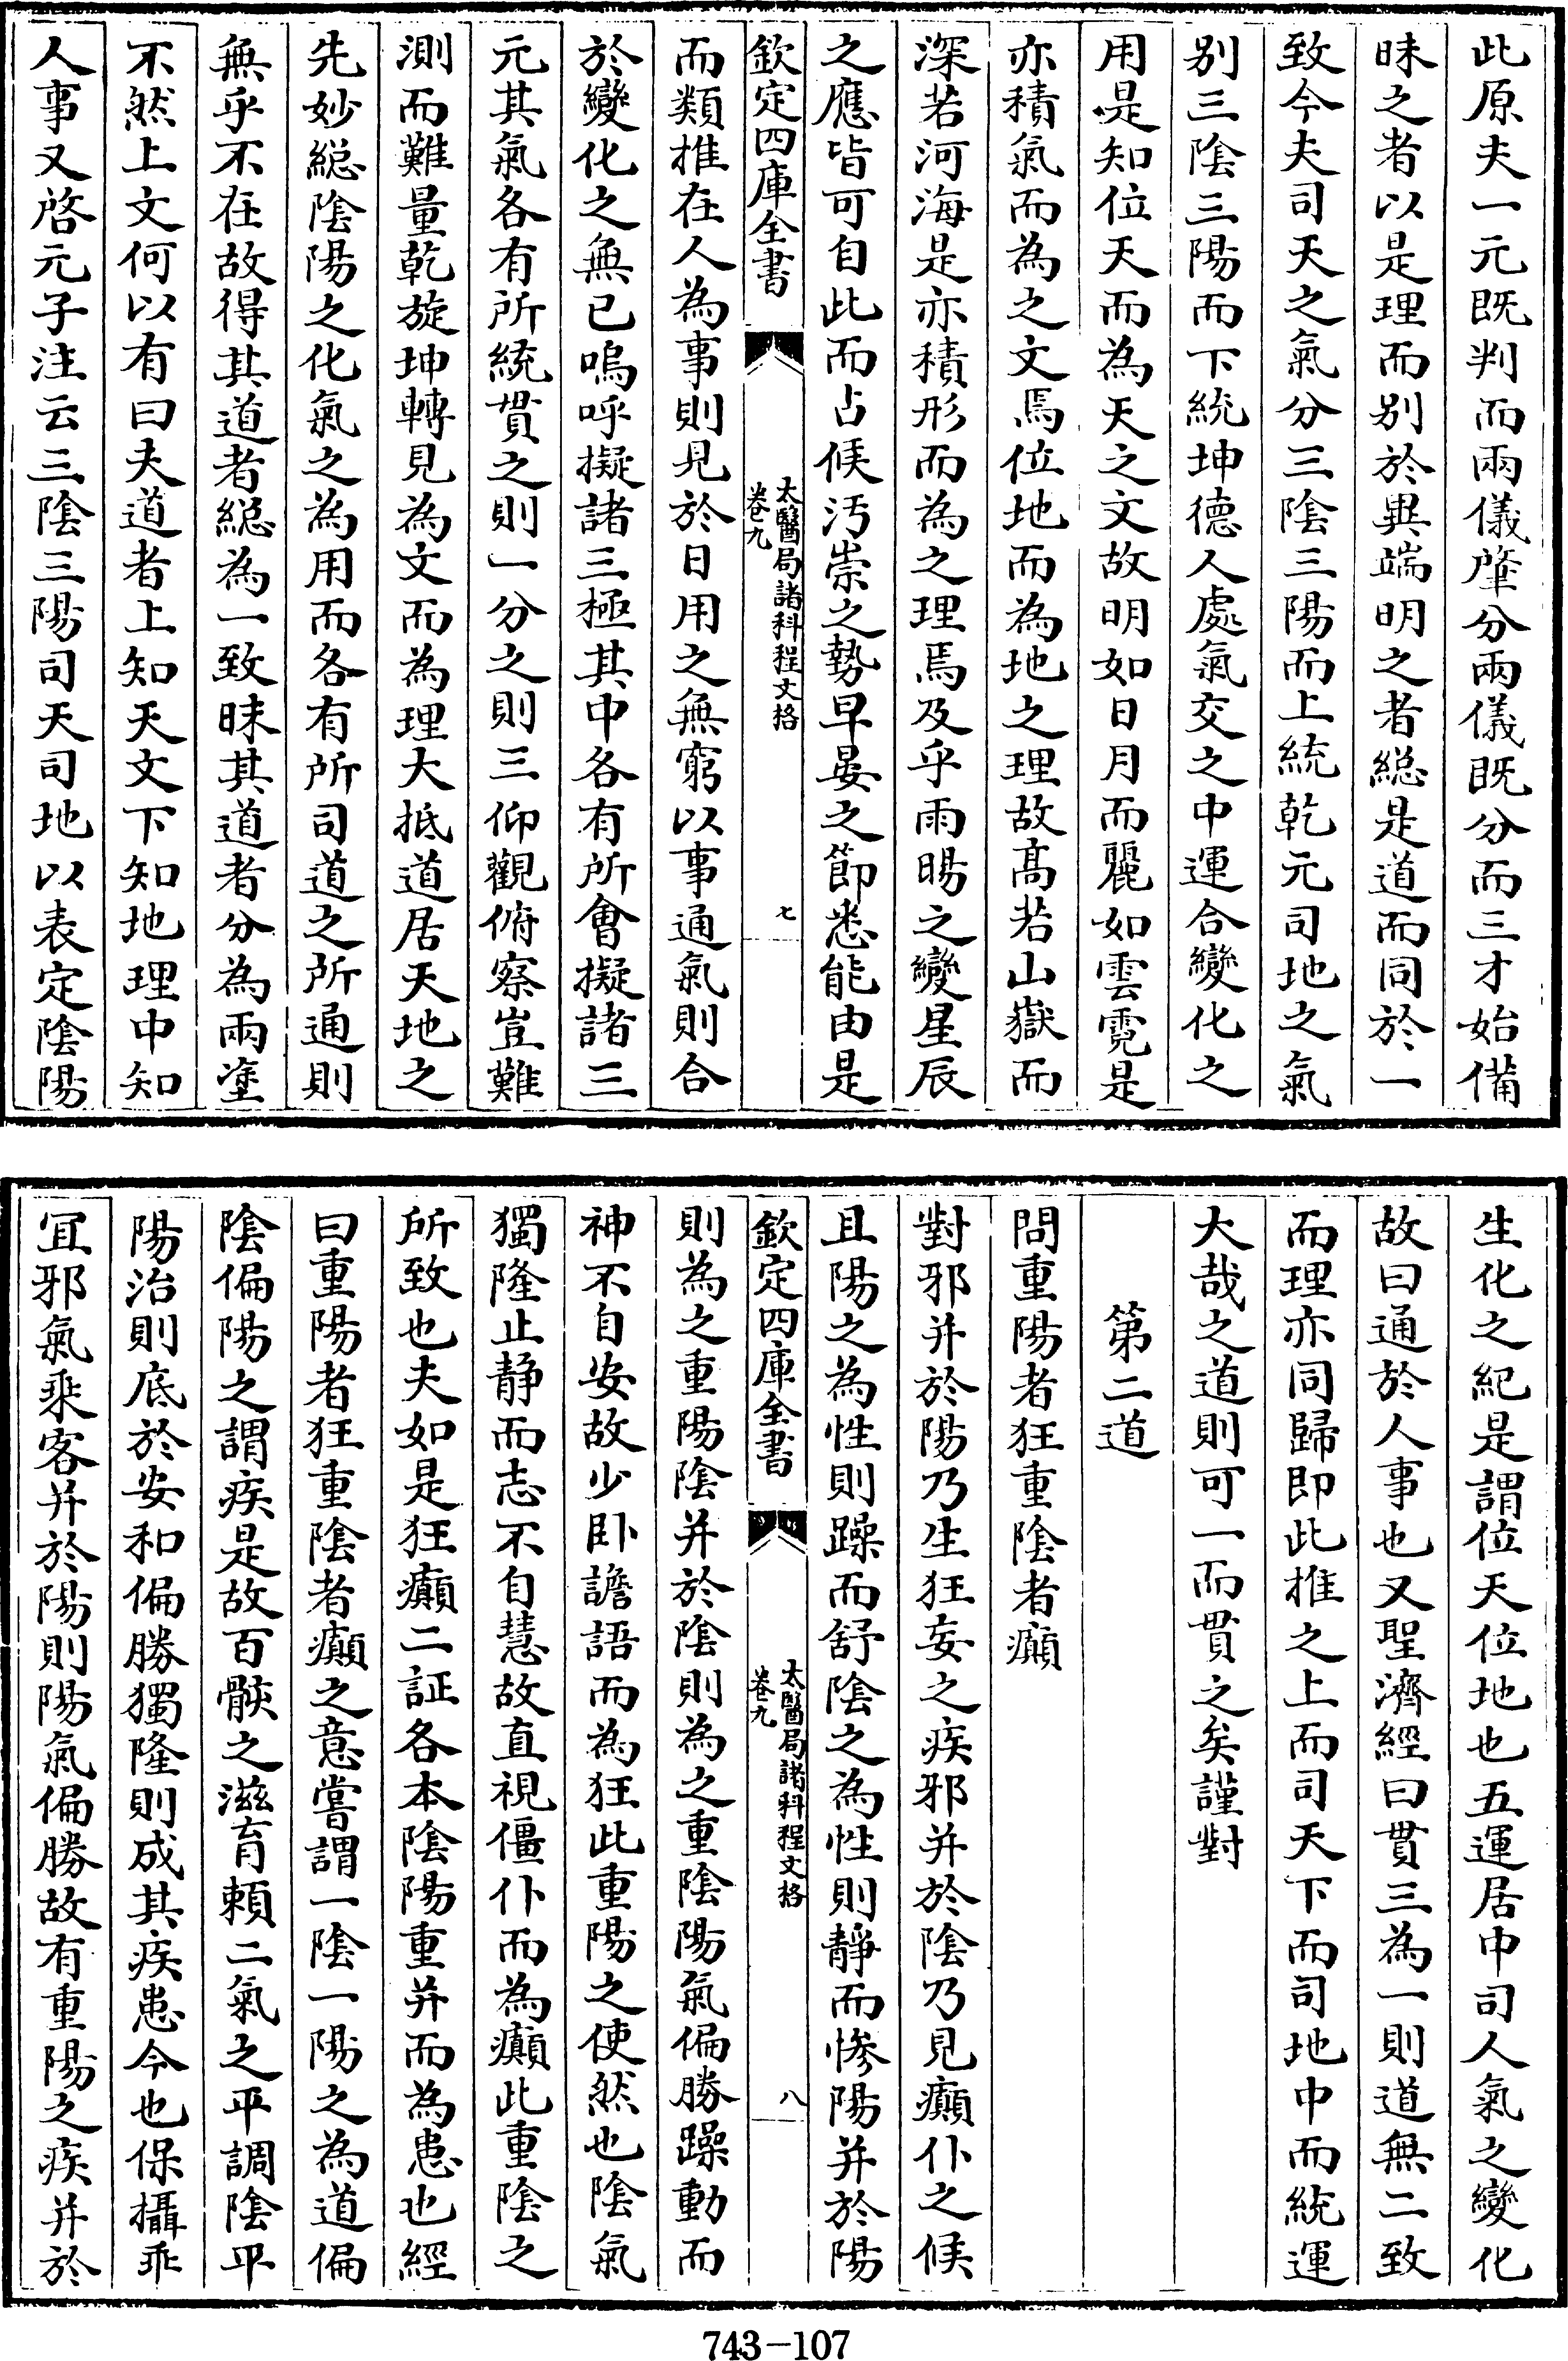 此原夫一元既判而兩儀肇分兩儀既分而三才始備
昧之者以是理而别於異端明之者総是道而同於一
致今夫司天之氣分三陰三陽而上統乾元司地之氣
别三陰三陽而下統坤德人處氣交之中運合變化之
用是知位天而為天之文故明如日月而麗如雲霓是
亦積氣而為之文焉位地而為地之理故髙若山嶽而
深若河海是亦積形而為之理焉及乎雨暘之變星辰
之應皆可自此而占候汚崇之勢早晏之節悉能由是
欽定四庫全書
太醫局諸科程文格
卷九
七
而類推在人為事則見於日用之無窮以事通氣則合
於變化之無已嗚呼擬諸三極其中各有所會擬諸三
元其氣各有所統貫之則一分之則三仰觀俯察豈難
測而難量乾旋坤轉見為文而為理大抵道居天地之
先妙総陰陽之化氣之為用而各有所司道之所通則
無乎不在故得其道者総為一致昧其道者分為兩塗
不然上文何以有曰夫道者上知天文下知地理中知
人事又啓元子注云三陰三陽司天司地以表定陰陽
生化之紀是謂位天位地也五運居中司人氣之變化
故曰通於人事也又聖濟經曰貫三為一則道無二致
而理亦同歸即此推之上而司天下而司地中而統運
大哉之道則可一而貫之矣謹對
第二道
問重陽者狂重陰者癲
對邪并於陽乃生狂妄之疾邪并於陰乃見癲仆之候
且陽之為性則躁而舒陰之為性則靜而慘陽并於陽
欽定四庫全書
太醫局諸科程文格
卷九
八
則為之重陽陰并於陰則為之重陰陽氣偏勝躁動而
神不自安故少卧譫語而為狂此重陽之使然也陰氣
獨隆止静而志不自慧故直視僵仆而為癲此重陰之
所致也夫如是狂癲二証各本陰陽重并而為患也經
曰重陽者狂重陰者癲之意嘗謂一陰一陽之為道偏
陰偏陽之謂疾是故百骸之滋育頼二氣之平調陰平
陽治則底於安和偏勝獨隆則成其疾患今也保攝乖
宜邪氣乘客并於陽則陽氣偏勝故有重陽之疾并於
743-107